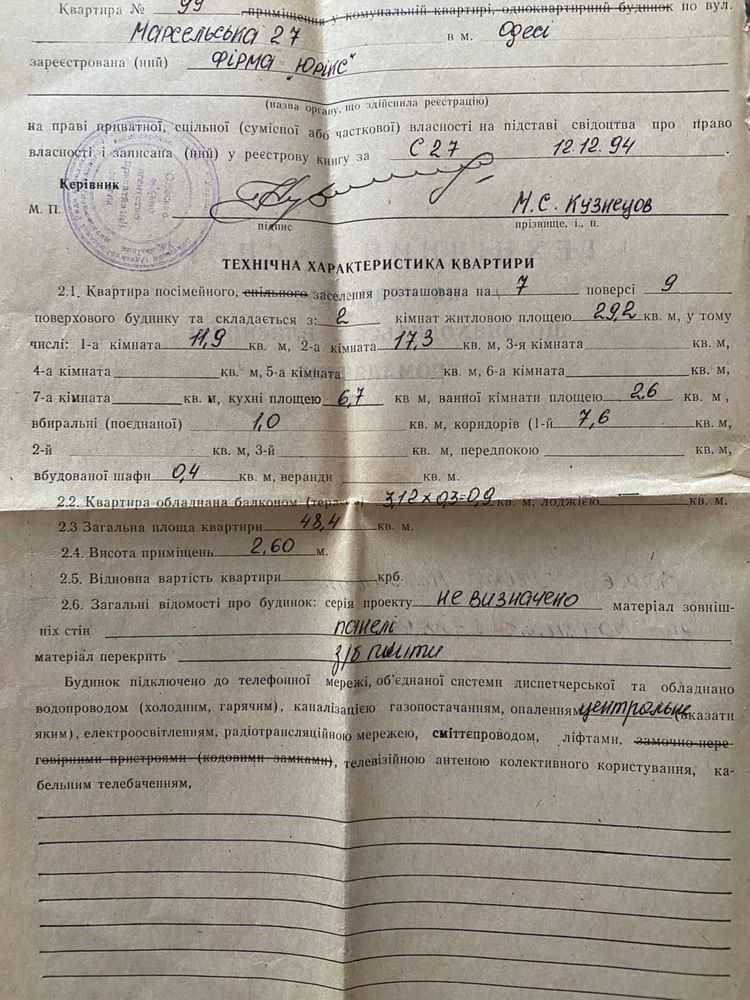 Квартира № 99 , приміщення у комунальній квартирі, одноквартирний будинок по вул.
Марсельська 27 в м. Одесі
зареєстрована (ний) Фірма „Юрікс"
(назва органу, що здійснила реєстрацію)
на праві приватної, спільної (сумісної або часткової) власності на підставі свідоцтва про право
власності, і записана (ний) у реєстрову книгу за С 27 12.12.94 .
Керівник
М. П. М.С. Кузнецов
підпис прізвище, і., п.
ТЕХНІЧНА ХАРАКТЕРИСТИКА КВАРТИРИ
2.1. Квартира посімейного, спільного заселення розташована на 7 поверсі 9
поверхового будинку та складається з: 2 кімнат житловою площею 29,2 кв. м, у тому
числі: 1-а кімната 11,9 кв. м, 2-а кімната 17,3 кв. м, 3-я кімната кв. м,
4-а кімната кв. м, 5-а кімната кв. м, 6-а кімната кв. м,
7-а кімната кв. м, кухні площею 6,7 кв. м, ванної кімнати площею 2,6 кв. м,
вбиральні (поєднаної) 1,0 кв. м, коридорів (1-й 7,6 кв. м,
2-й кв. м, 3-й кв. м, передпокою кв. м,
вбудованої шафи 0,4 кв. м, веранди кв. м.
2.2. Квартира обладнана балконом 3,12 x 0,3=0,9 кв. м, лоджією кв. м.
2.3 Загальна площа квартири 48,4 кв. м.
2.4. Висота приміщень 2,60 м.
2.5. Відновна вартість квартири крб.
2.6. Загальні відомості про будинок: серія проекту не визначено матеріал зовніш-
ніх стін панелі
матеріал перекрить з/б плити
Будинок підключено до телефонної мережі, об'єднаної системи диспетчерської та обладнано
водопроводом (холодним, гарячим), каналізацією газопостачанням, опаленням центральне (вказати
яким), електроосвітленням, радіотрансляційною мережею, сміттєпроводом, ліфтами, замочно-пере-
говірними пристроями (кодовими замками), телевізійною антеною колективного користування, ка-
бельним телебаченням,